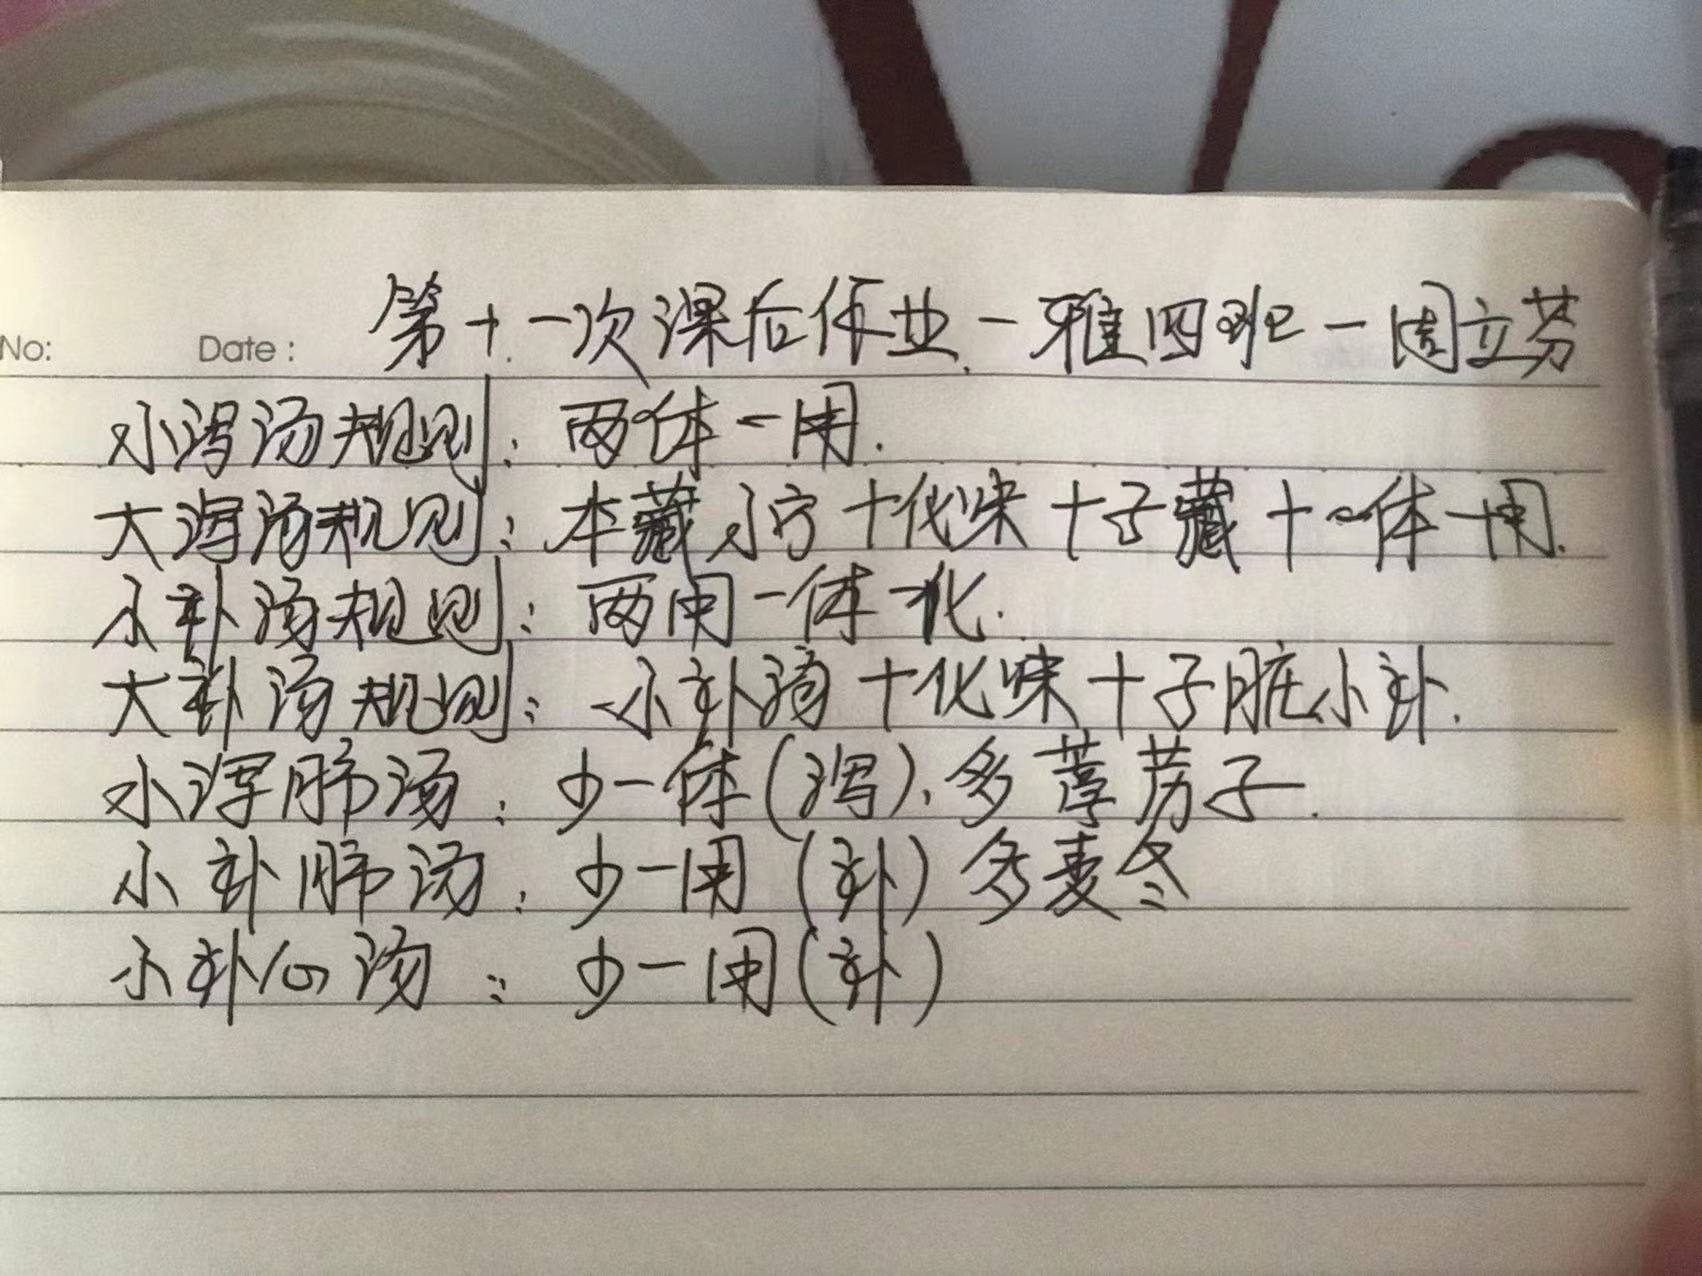 No: Date: 第十一次课后作业-雅四班-周立芬
小泻汤规则：两体一用.
大泻汤规则：本藏小方+化味+子藏+一体一用.
小补汤规则：两用一体一化.
大补汤规则：小补汤+化味+子脏小补.
小泻肺汤：少一体(泻)、多葶苈子.
小补肺汤：少一用(补)多麦冬
小补心汤：少一用(补)